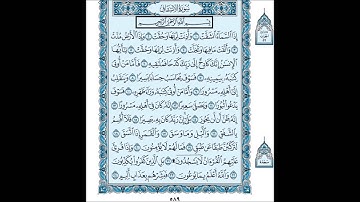 سُورَةُ الانشِقَاقِ
بِسْمِ اللَّهِ الرَّحْمَٰنِ الرَّحِيمِ
إِذَا السَّمَاءُ انشَقَّتْ ۝١ وَأَذِنَتْ لِرَبِّهَا وَحُقَّتْ ۝٢ وَإِذَا الْأَرْضُ مُدَّتْ
۝٣ وَأَلْقَتْ مَا فِيهَا وَتَخَلَّتْ ۝٤ وَأَذِنَتْ لِرَبِّهَا وَحُقَّتْ ۝٥ يَٰأَيُّهَا
الْإِنسَٰنُ إِنَّكَ كَادِحٌ إِلَىٰ رَبِّكَ كَدْحًا فَمُلَٰقِيهِ ۝٦ فَأَمَّا مَنْ أُوتِيَ
كِتَٰبَهُ بِيَمِينِهِ ۝٧ فَسَوْفَ يُحَاسَبُ حِسَابًا يَسِيرًا ۝٨ وَيَنقَلِبُ
إِلَىٰ أَهْلِهِ مَسْرُورًا ۝٩ وَأَمَّا مَنْ أُوتِيَ كِتَٰبَهُ وَرَاءَ ظَهْرِهِ ۝١٠ فَسَوْفَ
يَدْعُوا ثُبُورًا ۝١١ وَيَصْلَىٰ سَعِيرًا ۝١٢ إِنَّهُ كَانَ فِي أَهْلِهِ مَسْرُورًا ۝١٣
إِنَّهُ ظَنَّ أَن لَّن يَحُورَ ۝١٤ بَلَىٰ إِنَّ رَبَّهُ كَانَ بِهِ بَصِيرًا ۝١٥ فَلَا أُقْسِمُ
بِالشَّفَقِ ۝١٦ وَاللَّيْلِ وَمَا وَسَقَ ۝١٧ وَالْقَمَرِ إِذَا اتَّسَقَ ۝١٨
لَتَرْكَبُنَّ طَبَقًا عَن طَبَقٍ ۝١٩ فَمَا لَهُمْ لَا يُؤْمِنُونَ ۝٢٠ وَإِذَا قُرِئَ
عَلَيْهِمُ الْقُرْءَانُ لَا يَسْجُدُونَ ۩ ۝٢١ بَلِ الَّذِينَ كَفَرُوا يُكَذِّبُونَ ۝٢٢
وَاللَّهُ أَعْلَمُ بِمَا يُوعُونَ ۝٢٣ فَبَشِّرْهُم بِعَذَابٍ أَلِيمٍ ۝٢٤
٥٨٩